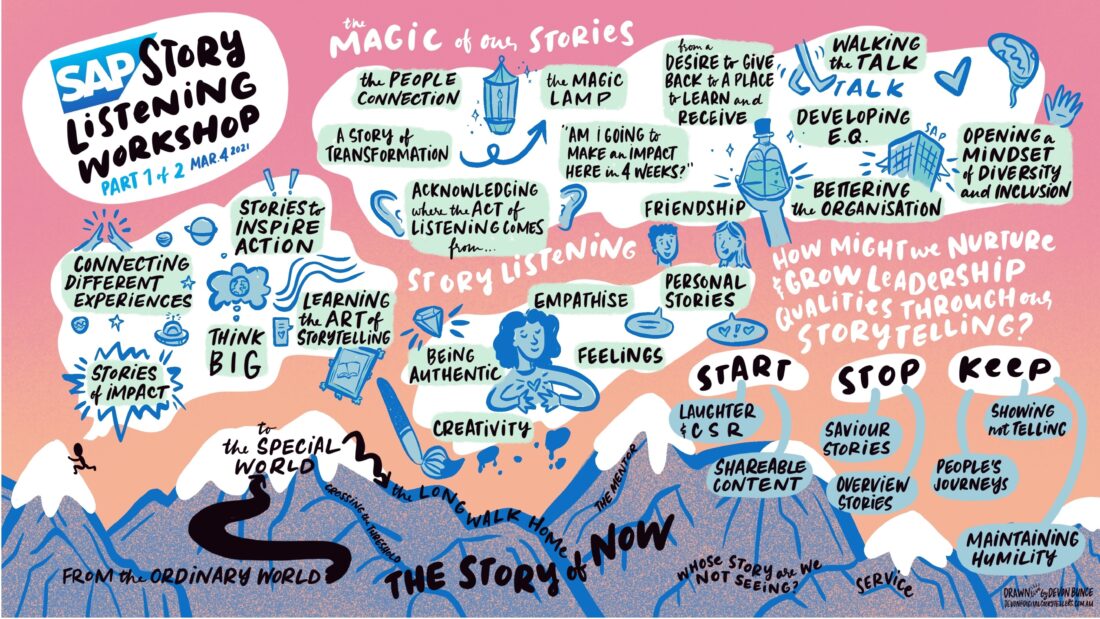 SAP STORY
LISTENING
WORKSHOP
PART 1 of 2 MAR.4 2021
the
MAGIC of our STORIES
the PEOPLE
CONNECTION
the MAGIC
LAMP
from a
DESIRE to GIVE
BACK to A PLACE
to LEARN and
RECEIVE
WALKING
the TALK
TALK
A STORY of
TRANSFORMATION
"AM I GOING to
MAKE an IMPACT
HERE in 4 WEEKS?"
DEVELOPING
E.Q.
SAP
OPENING a
MINDSET
of DIVERSITY
and INCLUSION
BETTERING
the ORGANISATION
ACKNOWLEDGING
where the ACT of
LISTENING COMES
from...
FRIENDSHIP
STORIES to
INSPIRE
ACTION
CONNECTING
DIFFERENT
EXPERIENCES
THINK
BIG
LEARNING
the ART of
STORYTELLING
STORIES
of IMPACT
STORY LISTENING
EMPATHISE
PERSONAL
STORIES
BEING
AUTHENTIC
FEELINGS
CREATIVITY
HOW MIGHT we NURTURE
& GROW LEADERSHIP
QUALITIES THROUGH our
STORYTELLING?
START
LAUGHTER
& CSR
SHAREABLE
CONTENT
STOP
SAVIOUR
STORIES
OVERVIEW
STORIES
KEEP
SHOWING
not TELLING
PEOPLE'S
JOURNEYS
MAINTAINING
HUMILITY
FROM the ORDINARY WORLD
to
the SPECIAL
WORLD
CROSSING the THRESHOLD
the LONG WALK HOME
THE MENTOR
THE STORY of NOW
WHOSE STORY are WE
NOT SEEING?
SERVICE
DRAWN by DEVON BUNCE